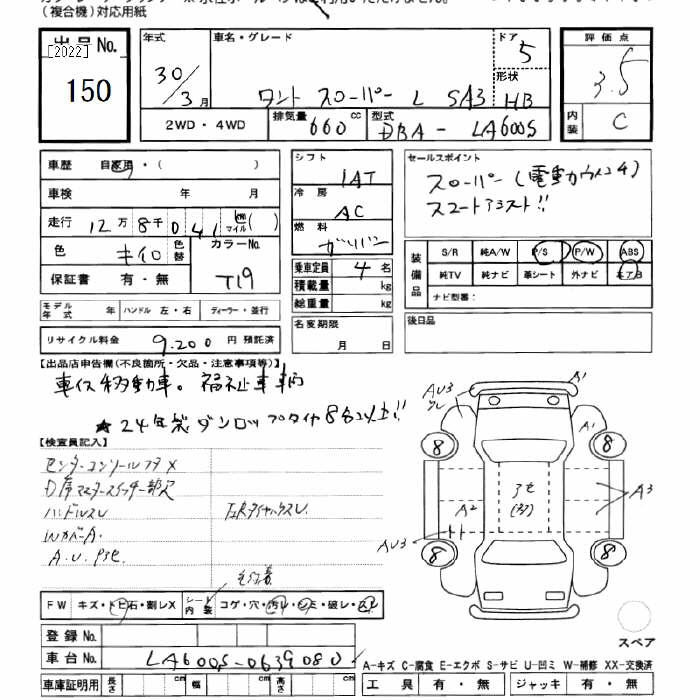 （複合機）対応用紙
出品No.
［2022］
150
年式
30/3月
車名・グレード
タント スローパー L SA3
ドア
5
形状
HB
評価点
3.5
内装
C
2WD・4WD
排気量 660 cc
型式 DBA-LA600S
車歴 自家用・（ ）
車検 年 月
走行 12万8千041 km マイル（ ）
色 キイロ
色替
カラーNo.
T19
保証書 有・無
モデル年式 年 ハンドル 左・右 ディーラー・並行
リサイクル料金 9.200 円 預託済
シフト
IAT
冷房
AC
燃料
ガソリン
乗車定員 4 名
積載量 kg
総重量 kg
名変期限
月 日
セールスポイント
スローパー（電動ウインチ）
スマートアシスト!!
装備品
S/R 純A/W P/S P/W ABS
純TV 純ナビ 革シート 外ナビ エアB
ナビ型番：
後日品
【出品店申告欄（不良箇所・欠品・注意事項等）】
車イス移動車。福祉車輌
★24年製ダンロップタイヤ8分以上!!
【検査員記入】
センターコンソールフタ✕
D席マスタースイッチ部
ハンドルスレ
Wカバー A.
A.U. P3e.
FW キズ・トビ石・割レX
シート内装 コゲ・穴・汚レ・シミ・破レ・スレ
登録No.
車台No. LA600S-0639080
車庫証明用 長さ cm 幅 cm 高さ cm
AU3
A1
A1
8
8
A2
A3
AU3
8
8
スペア
A-キズ C-腐食 E-エクボ S-サビ U-凹ミ W-補修 XX-交換済
工具 有・無 ジャッキ 有・無